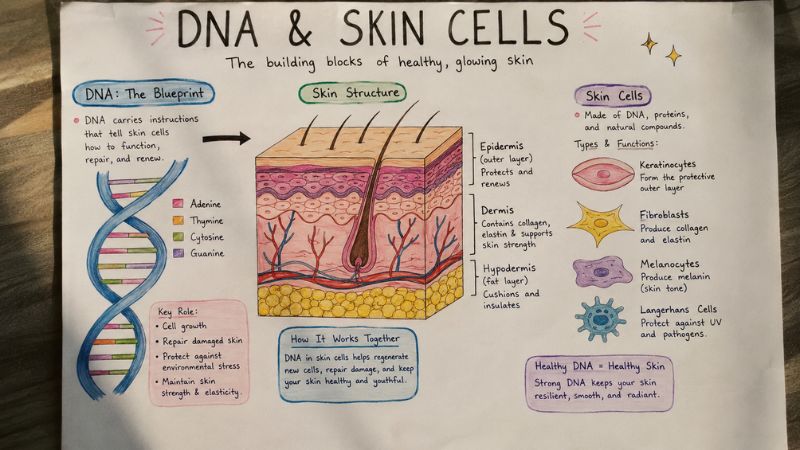 DNA & SKIN CELLS
The building blocks of healthy, glowing skin
DNA: The Blueprint
DNA carries instructions
that tell skin cells
how to function,
repair, and renew.
Adenine
Thymine
Cytosine
Guanine
Key Role:
• Cell growth
• Repair damaged skin
• Protect against
environmental stress
• Maintain skin
strength & elasticity.
Skin Structure
Epidermis
(outer layer)
Protects and
renews
Dermis
Contains collagen,
elastin & supports
skin strength
Hypodermis
(fat layer)
Cushions and
insulates
How It Works Together
DNA in skin cells helps regenerate
new cells, repair damage, and keep
your skin healthy and youthful.
Skin Cells
Made of DNA, proteins,
and natural compounds.
Types & Functions:
Keratinocytes
Form the protective
outer layer
Fibroblasts
Produce collagen
and elastin
Melanocytes
Produce melanin
(skin tone)
Langerhans Cells
Protect against UV
and pathogens.
Healthy DNA = Healthy Skin
Strong DNA keeps your skin
resilient, smooth, and radiant.